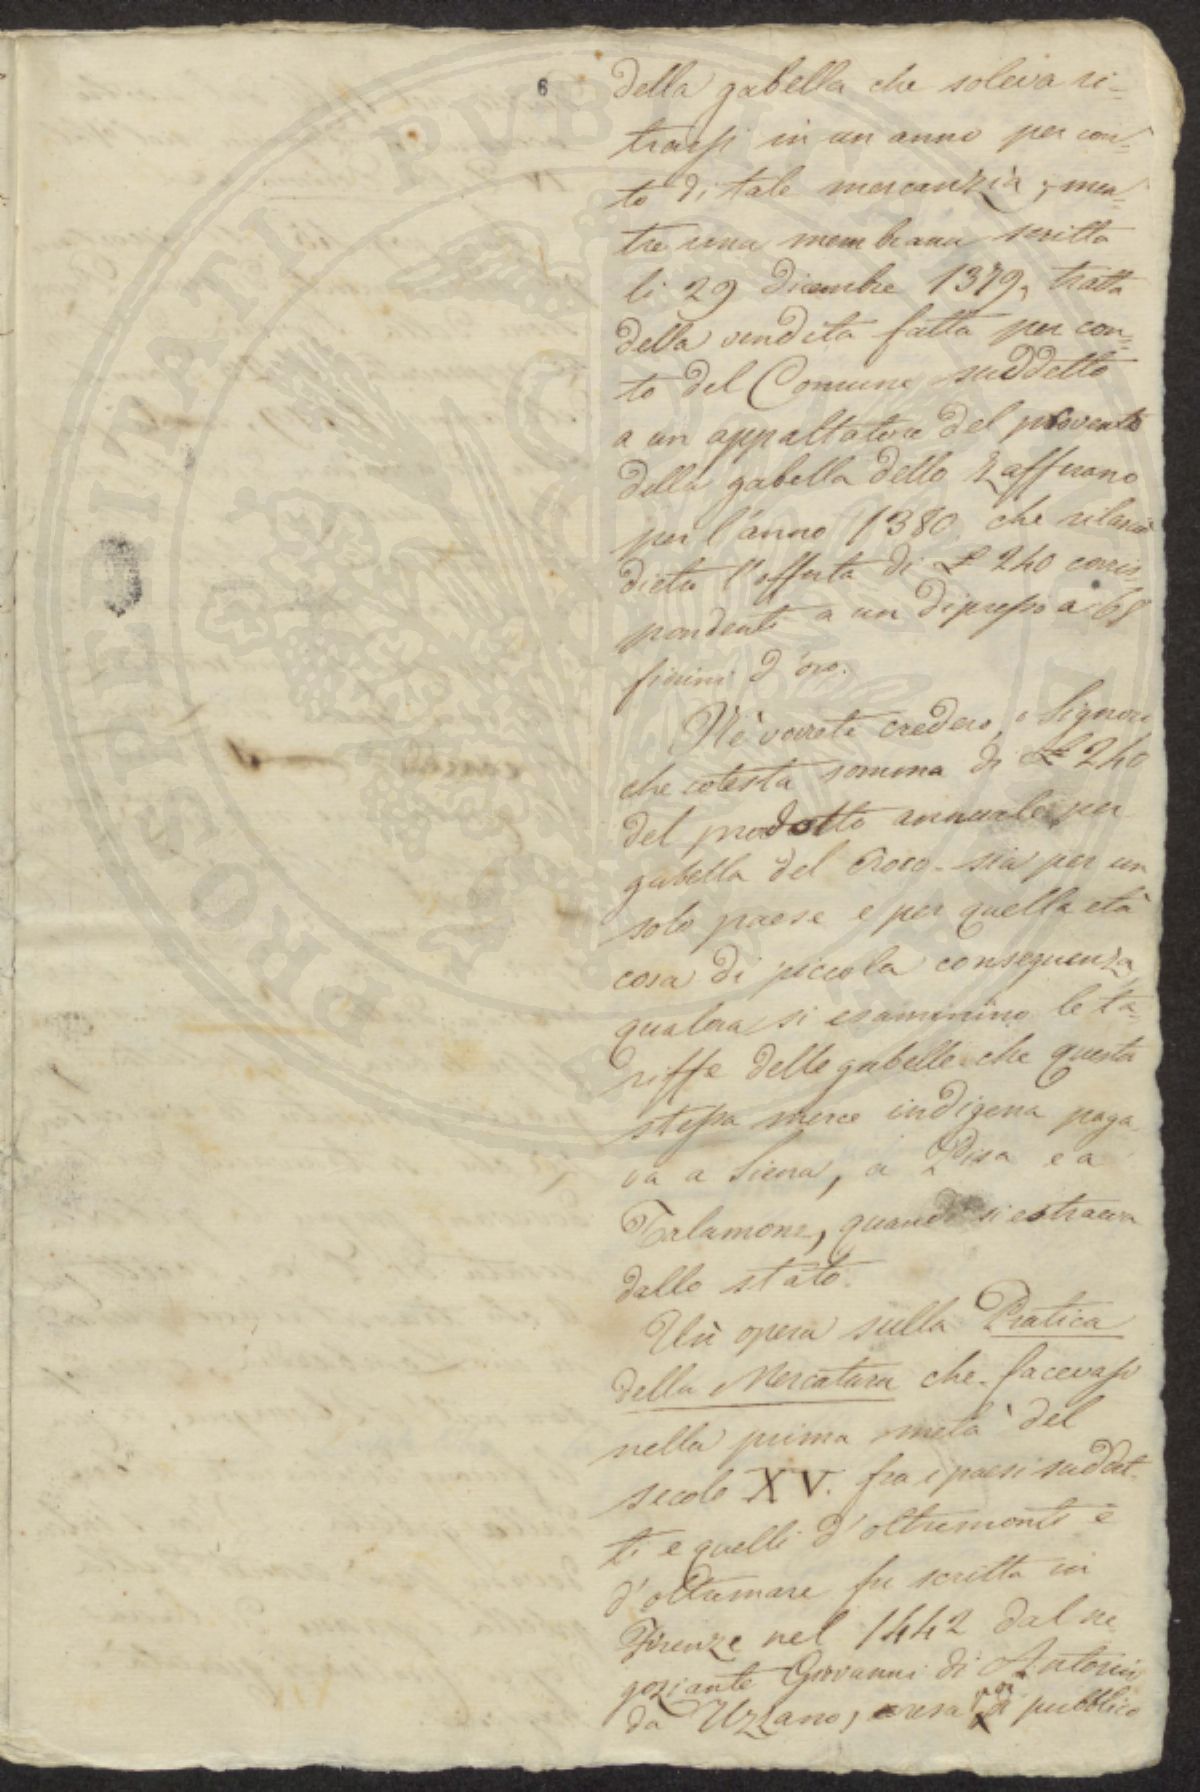 6
della gabella che soleva ri-
trarsi in un anno per con-
to di tale mercanzia, men-
tre una membrana scritta
li 29 Dicembre 1379, tratta
della vendita fatta per con-
to del Comune suddetto
a un appaltatore del provento
della gabella dello Zafferano
per l'anno 1380 che rilasciò
dietro l'offerta di £ 240 corris-
pondenti a un dipresso a 68
fiorini d'oro.
Nè vorrete credere, o Signori
che cotesta somma di £ 240
del prodotto annuale per
gabella del Croco - sia per un
solo paese e per quella età
cosa di piccola conseguenza,
qualora si esaminino le ta-
riffe delle gabelle che questa
stessa merce indigena paga-
va a Siena, a Pisa e a
Talamone, quando si estraeva
dallo stato.
Un' opera sulla Pratica
della Mercatura che facevasi
nella prima metà del
secolo XV. fra i paesi suddet-
ti e quelli d'oltremonte e
d'oltremare fu scritta in
Firenze nel 1442 dal ne-
goziante Giovanni di Antonio
da Uzzano, e resa poi di pubblico
PROSPERITATI PUBLICAE